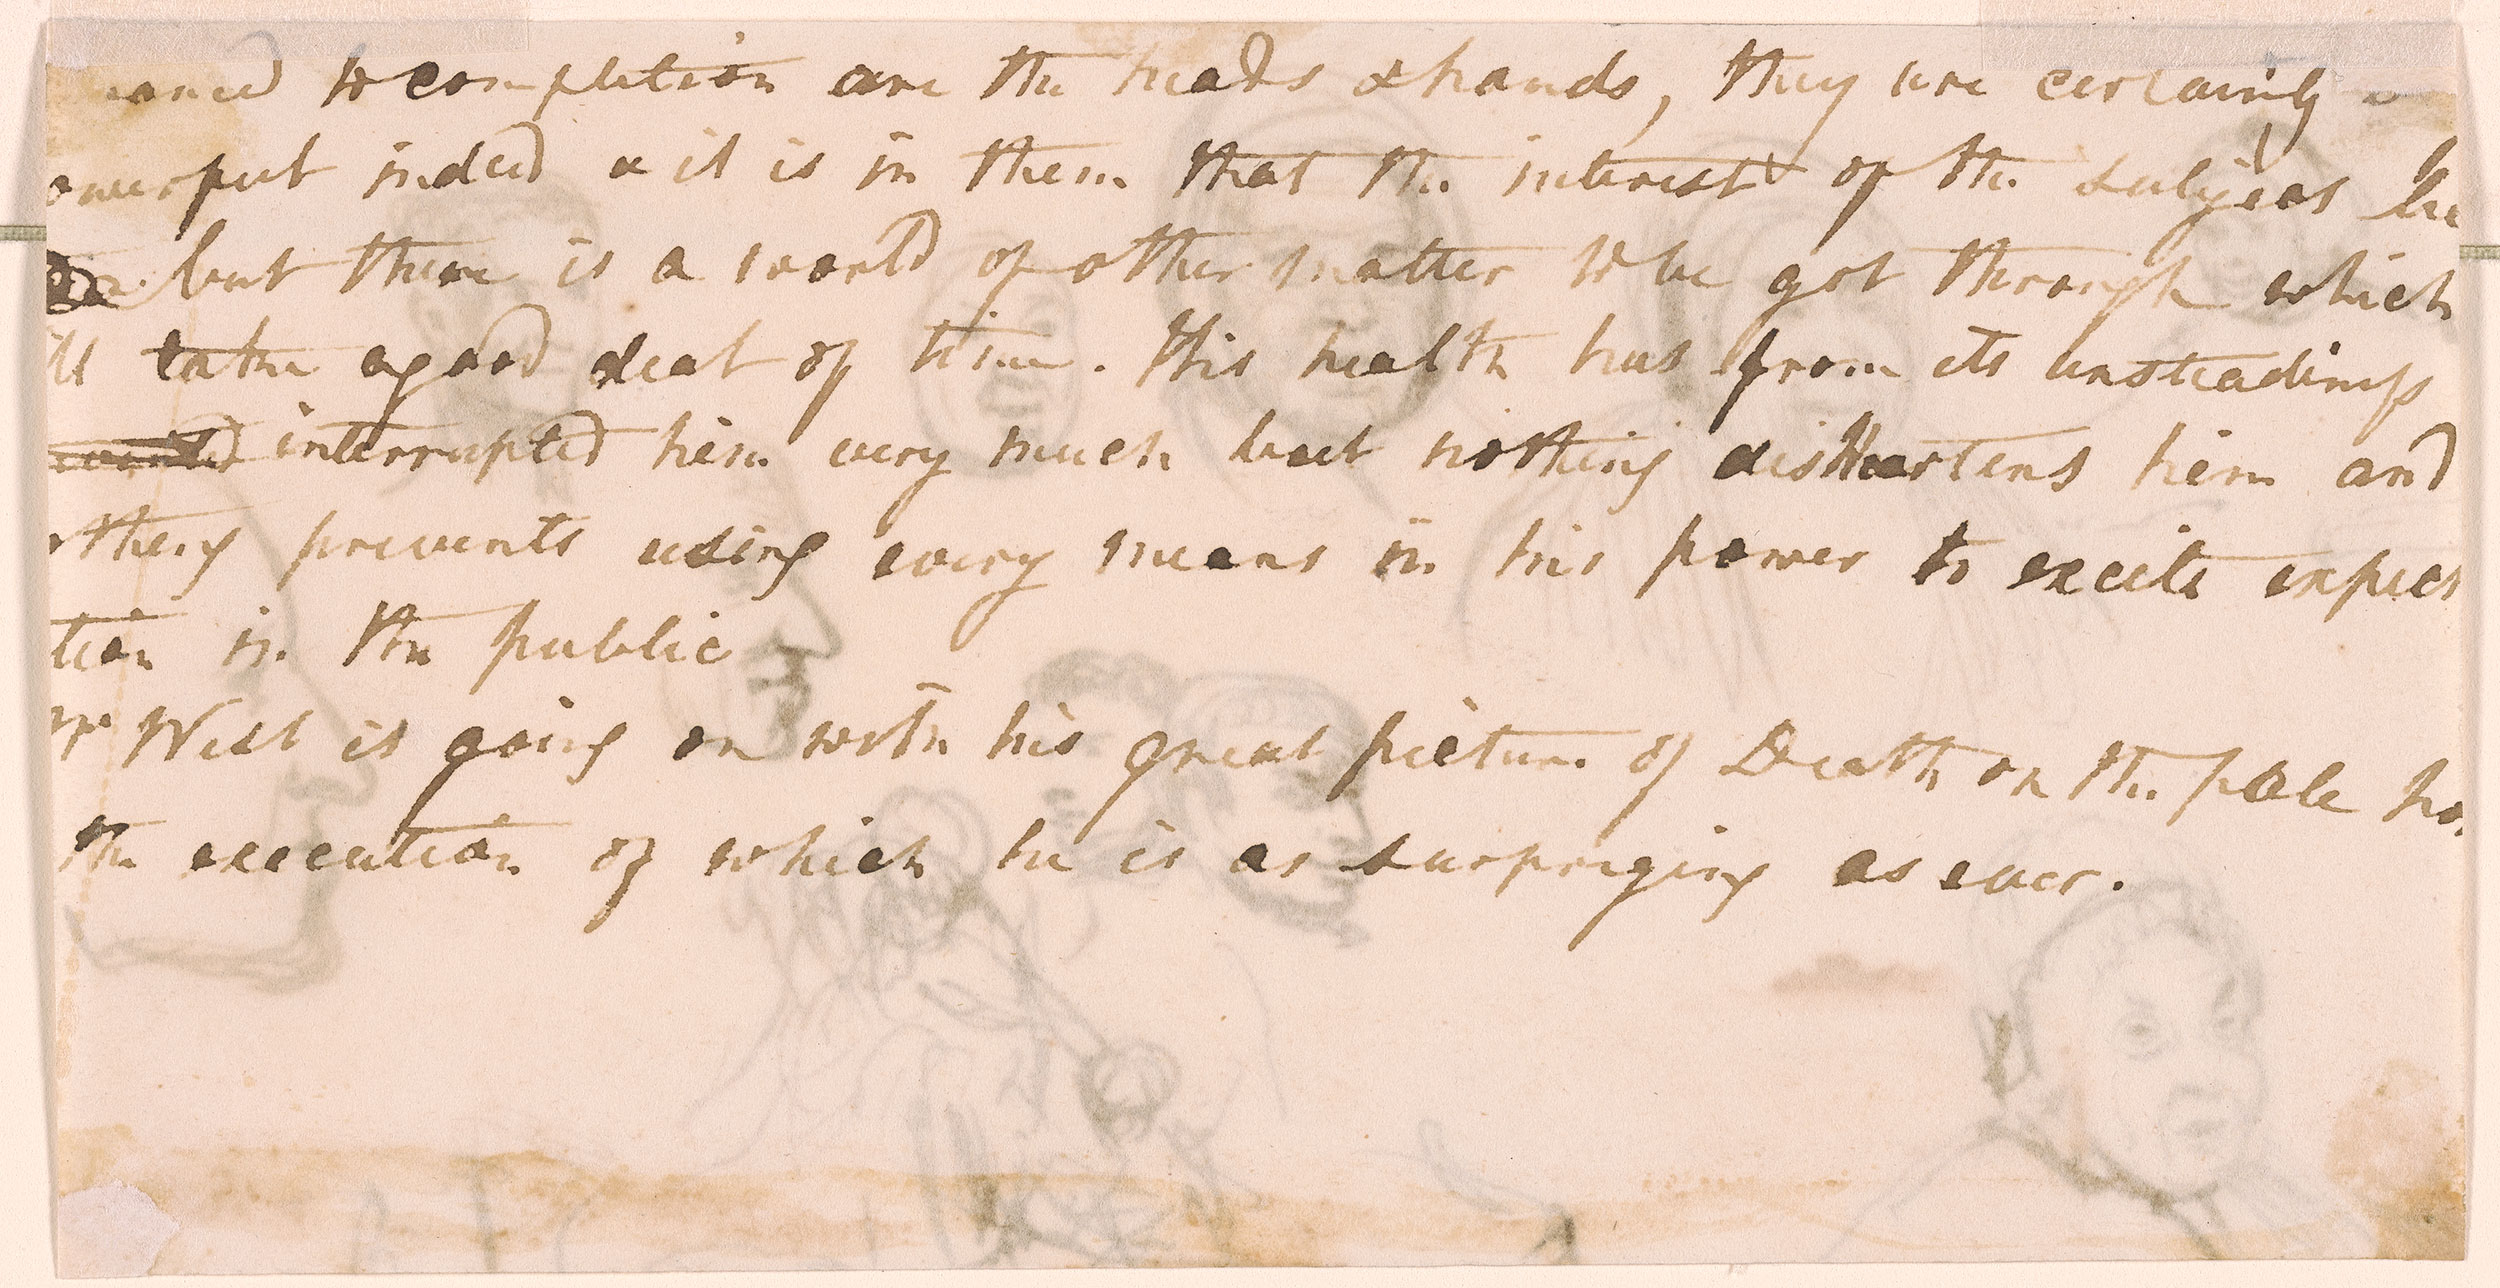 to completion are the heads & hands, they are certainly
indeed & it is in them that the interest of the subject
but there is a world of other matter to be got through which
take a good deal of time. His health has from its unsteadiness
interrupted him very much but nothing disheartens him and
othing prevents using every means in his power to excite expec
tion in the public
Mr West is going on with his great picture of Death on the pale ho
the execution of which he is as surprizing as ever.